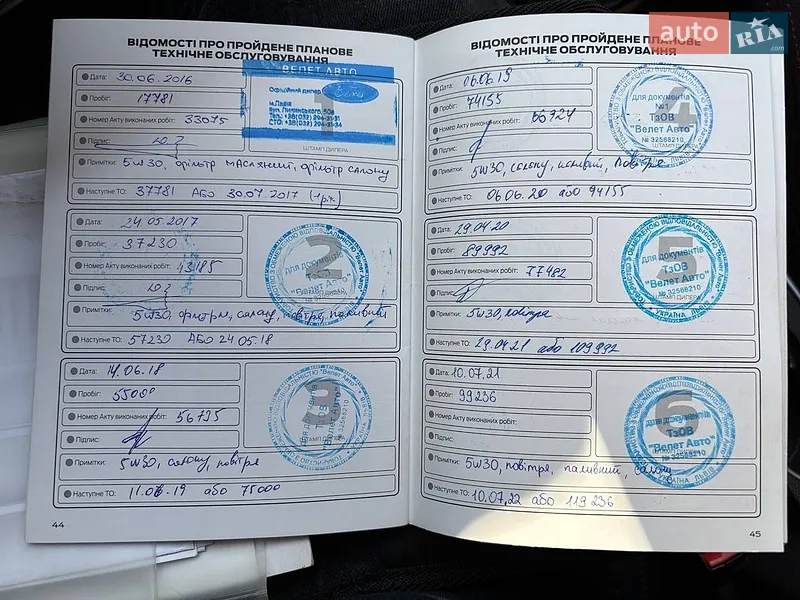 auto RIA .com
ВІДОМОСТІ ПРО ПРОЙДЕНЕ ПЛАНОВЕ
ТЕХНІЧНЕ ОБСЛУГОВУВАННЯ
Дата: 30.06.2016
Пробіг: 17781
Номер Акту виконаних робіт: 33075
Підпис:
Примітки: 5w30, фільтр масляний, фільтр салону
Наступне ТО: 37781 або 30.07.2017 (1рік)
ВЕЛЕТ АВТО
Офіційний дилер
м.Львів
1
ШТАМП ДИЛЕРА
Дата: 24.05.2017
Пробіг: 37230
Номер Акту виконаних робіт: 43185
Підпис:
Примітки: 5w30, фільтр, салону, повітря, паливний
Наступне ТО: 57230 АБО 24.05.18
2
для документів
ТзОВ
"Велет Авто"
№ 32568210
Дата: 14.06.18
Пробіг: 55000
Номер Акту виконаних робіт: 56795
Підпис:
Примітки: 5w30, салону, повітря
Наступне ТО: 11.06.19 або 75000
3
44
ВІДОМОСТІ ПРО ПРОЙДЕНЕ ПЛАНОВЕ
ТЕХНІЧНЕ ОБСЛУГОВУВАННЯ
Дата: 06.06.19
Пробіг: 74155
Номер Акту виконаних робіт: 66924
Підпис:
Примітки: 5w30, салону, повітря
Наступне ТО: 06.06.20 або 94155
4
для документів
№1
ТзОВ
"Велет Авто"
№ 32568210
ШТАМП ДИЛЕРА
Дата: 29.04.20
Пробіг: 89992
Номер Акту виконаних робіт: 77482
Підпис:
Примітки: 5w30, повітря
Наступне ТО: 29.04.21 або 109992
5
для документів
ТзОВ
"Велет Авто"
№ 32568210
УКРАЇНА
Дата: 10.07.21
Пробіг: 99236
Номер Акту виконаних робіт:
Підпис:
Примітки: 5w30, повітря, паливний, салону
Наступне ТО: 10.07.22 або 119236
6
для документів
ТзОВ
"Велет Авто"
№ 32568210
УКРАЇНА ЛЬВІВ
45